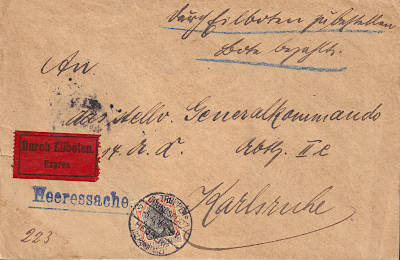 durch Eilboten zu bestellen
Bote bezahlt.
An
das stellv. Generalkommando
14. A. K. Abtg. II c
Durch Eilboten.
Exprès.
Heeressache.
Karlsruhe
223